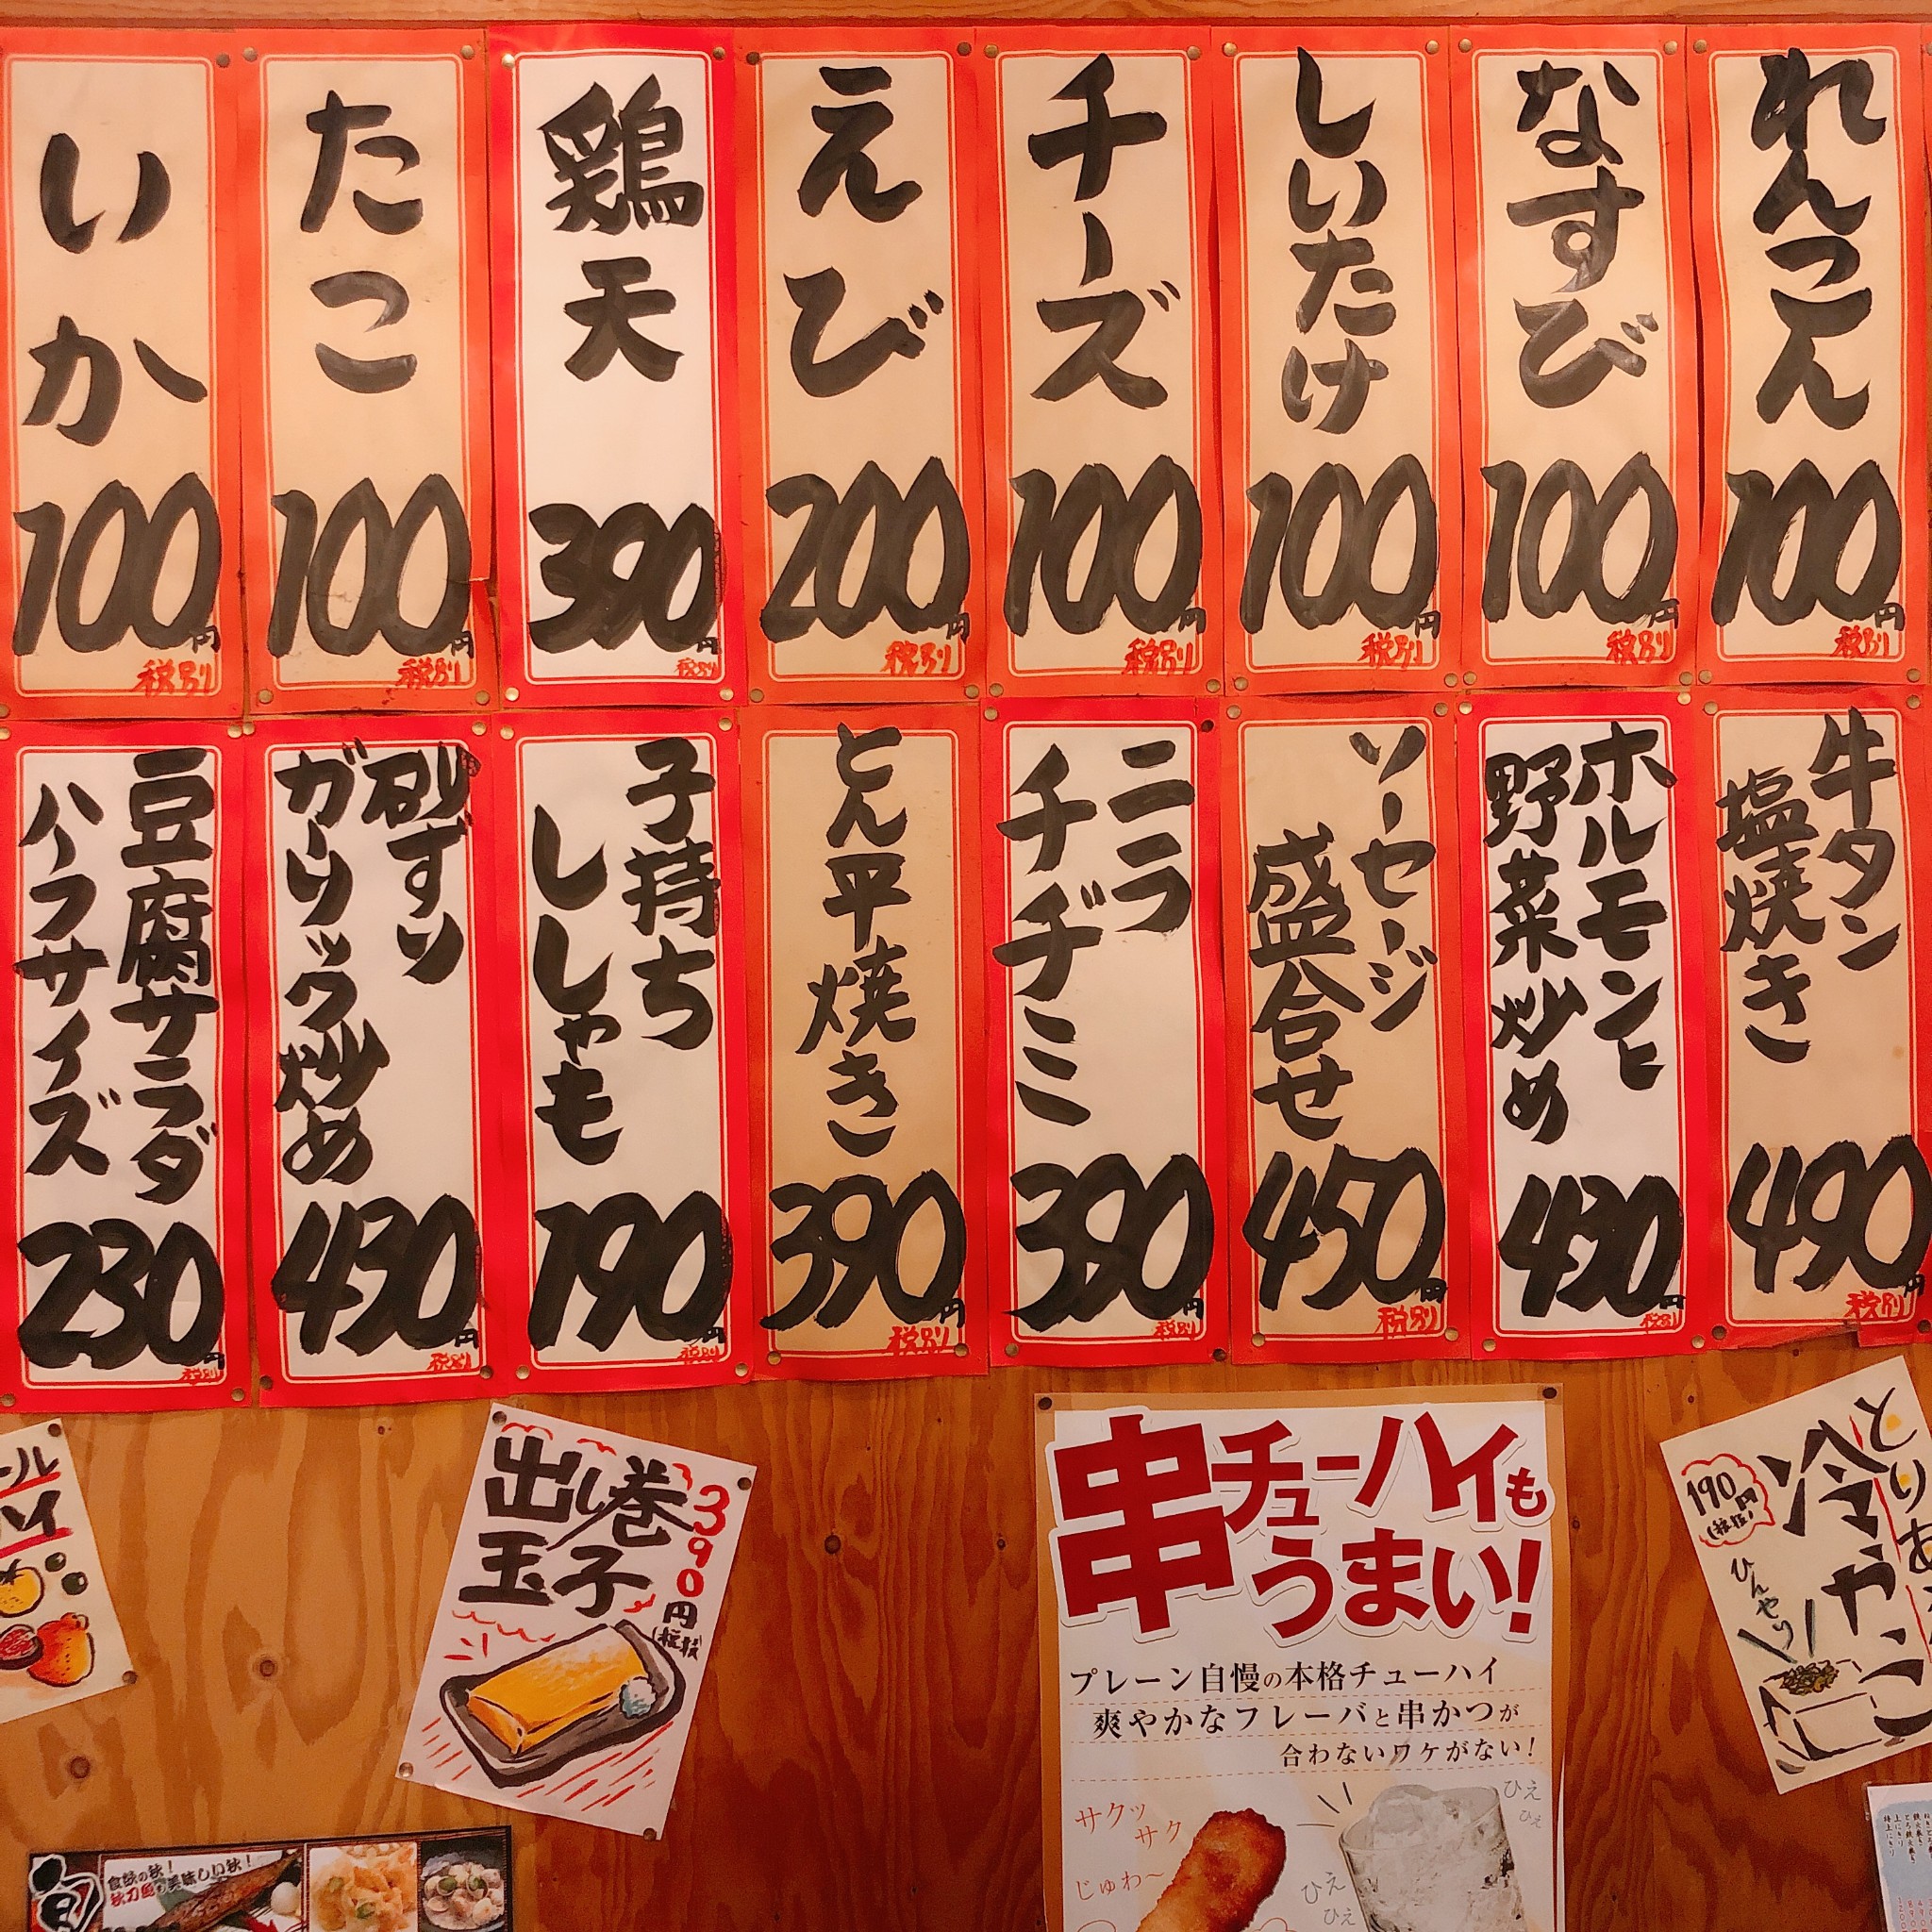 れんこん
100円
税別
なすび
100円
税別
しいたけ
100円
税別
チーズ
100円
税別
えび
200円
税別
鶏天
390円
税別
たこ
100円
税別
いか
100円
税別
牛タン
塩焼き
490円
税別
ホルモンと
野菜炒め
430円
税別
ソーセージ
盛合せ
450円
税別
ニラ
チヂミ
390円
税別
とん平焼き
390円
税別
子持ち
ししゃも
190円
税別
砂ずり
ガーリック炒め
430円
税別
豆腐サラダ
ハーフサイズ
230円
税別
ール
ハイ
出し巻
玉子
390円
(税抜)
串チューハイも
うまい!
プレーン自慢の本格チューハイ
爽やかなフレーバと串かつが
合わないワケがない!
サクッ
サク
じゅわ〜
ひえ
ひえ
ひえ
ひえ
とりあ
冷ややっこ
190円
(税抜)
ひんやり
旬
食欲の秋!
秋刀魚も美味しい秋!